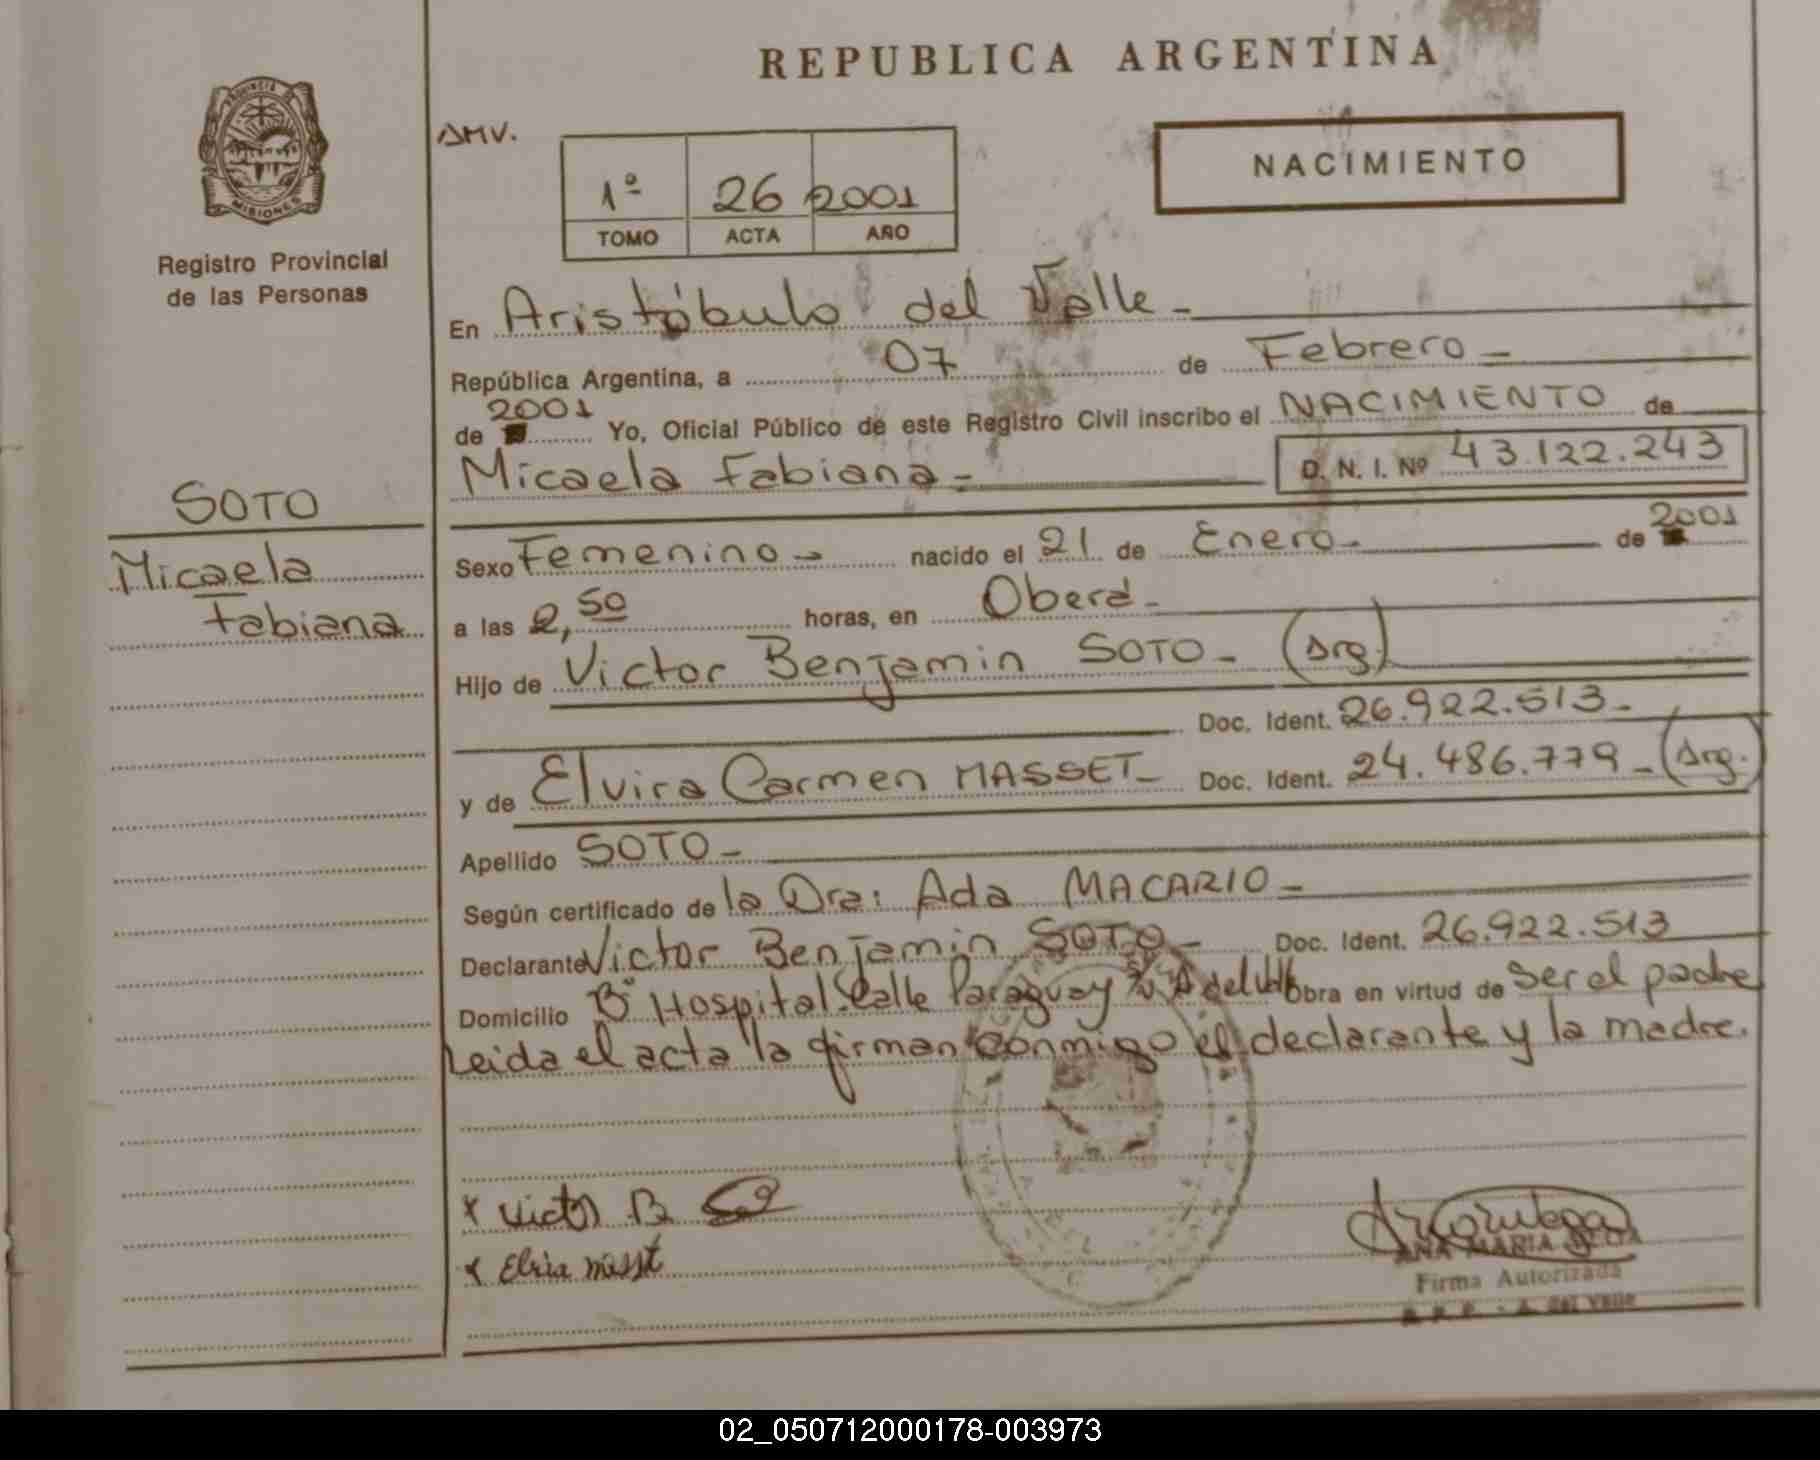 REPUBLICA ARGENTINA
PROVINCIA
MISIONES
Registro Provincial
de las Personas
AMV.
1º 26 2001
TOMO ACTA AÑO
NACIMIENTO
En Aristóbulo del Valle -
República Argentina, a 07 de Febrero -
2001
de Yo, Oficial Público de este Registro Civil inscribo el NACIMIENTO de
Micaela Fabiana - D. N. I. Nº 43.122.243
SOTO
Micaela
Fabiana
Sexo Femenino - nacido el 21 de Enero - de 2001
a las 2,50 horas, en Oberá -
Hijo de Victor Benjamin SOTO - (Arg.)
Doc. Ident. 26.922.513 -
y de Elvira Carmen MASSET - Doc. Ident. 24.486.779 - (Arg.)
Apellido SOTO -
Según certificado de la Dra: Ada MACARIO -
Declarante Victor Benjamin SOTO - Doc. Ident. 26.922.513
Domicilio Bº Hospital Calle Paraguay s/n A del Valle Obra en virtud de ser el padre
Leida el acta la firman conmigo el declarante y la madre.
x Victor B
x Elvira Masset
ANA MARIA
Firma Autorizada
R. P. P. - A. del Valle
02_050712000178-003973